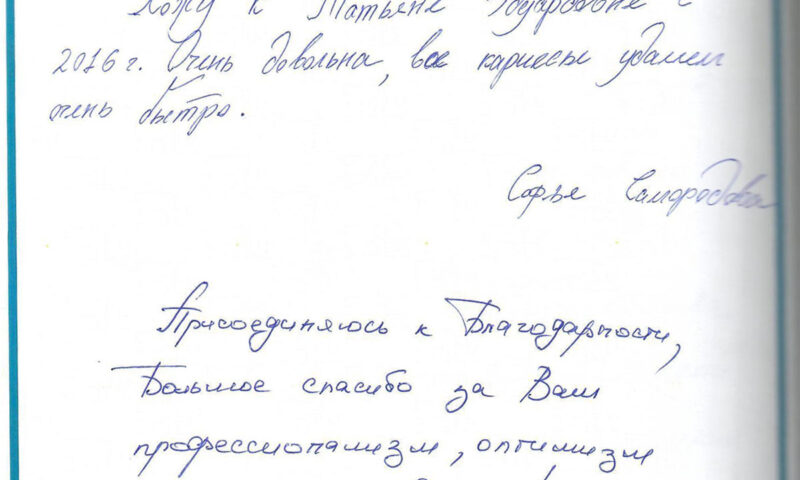 Хожу к Татьяне Эдуардовне с
2016 г. Очень довольна, все кариесы удалили
очень быстро.
Софья Самородова
Присоединяюсь к Благодарности,
Большое спасибо за Ваш
профессионализм, оптимизм